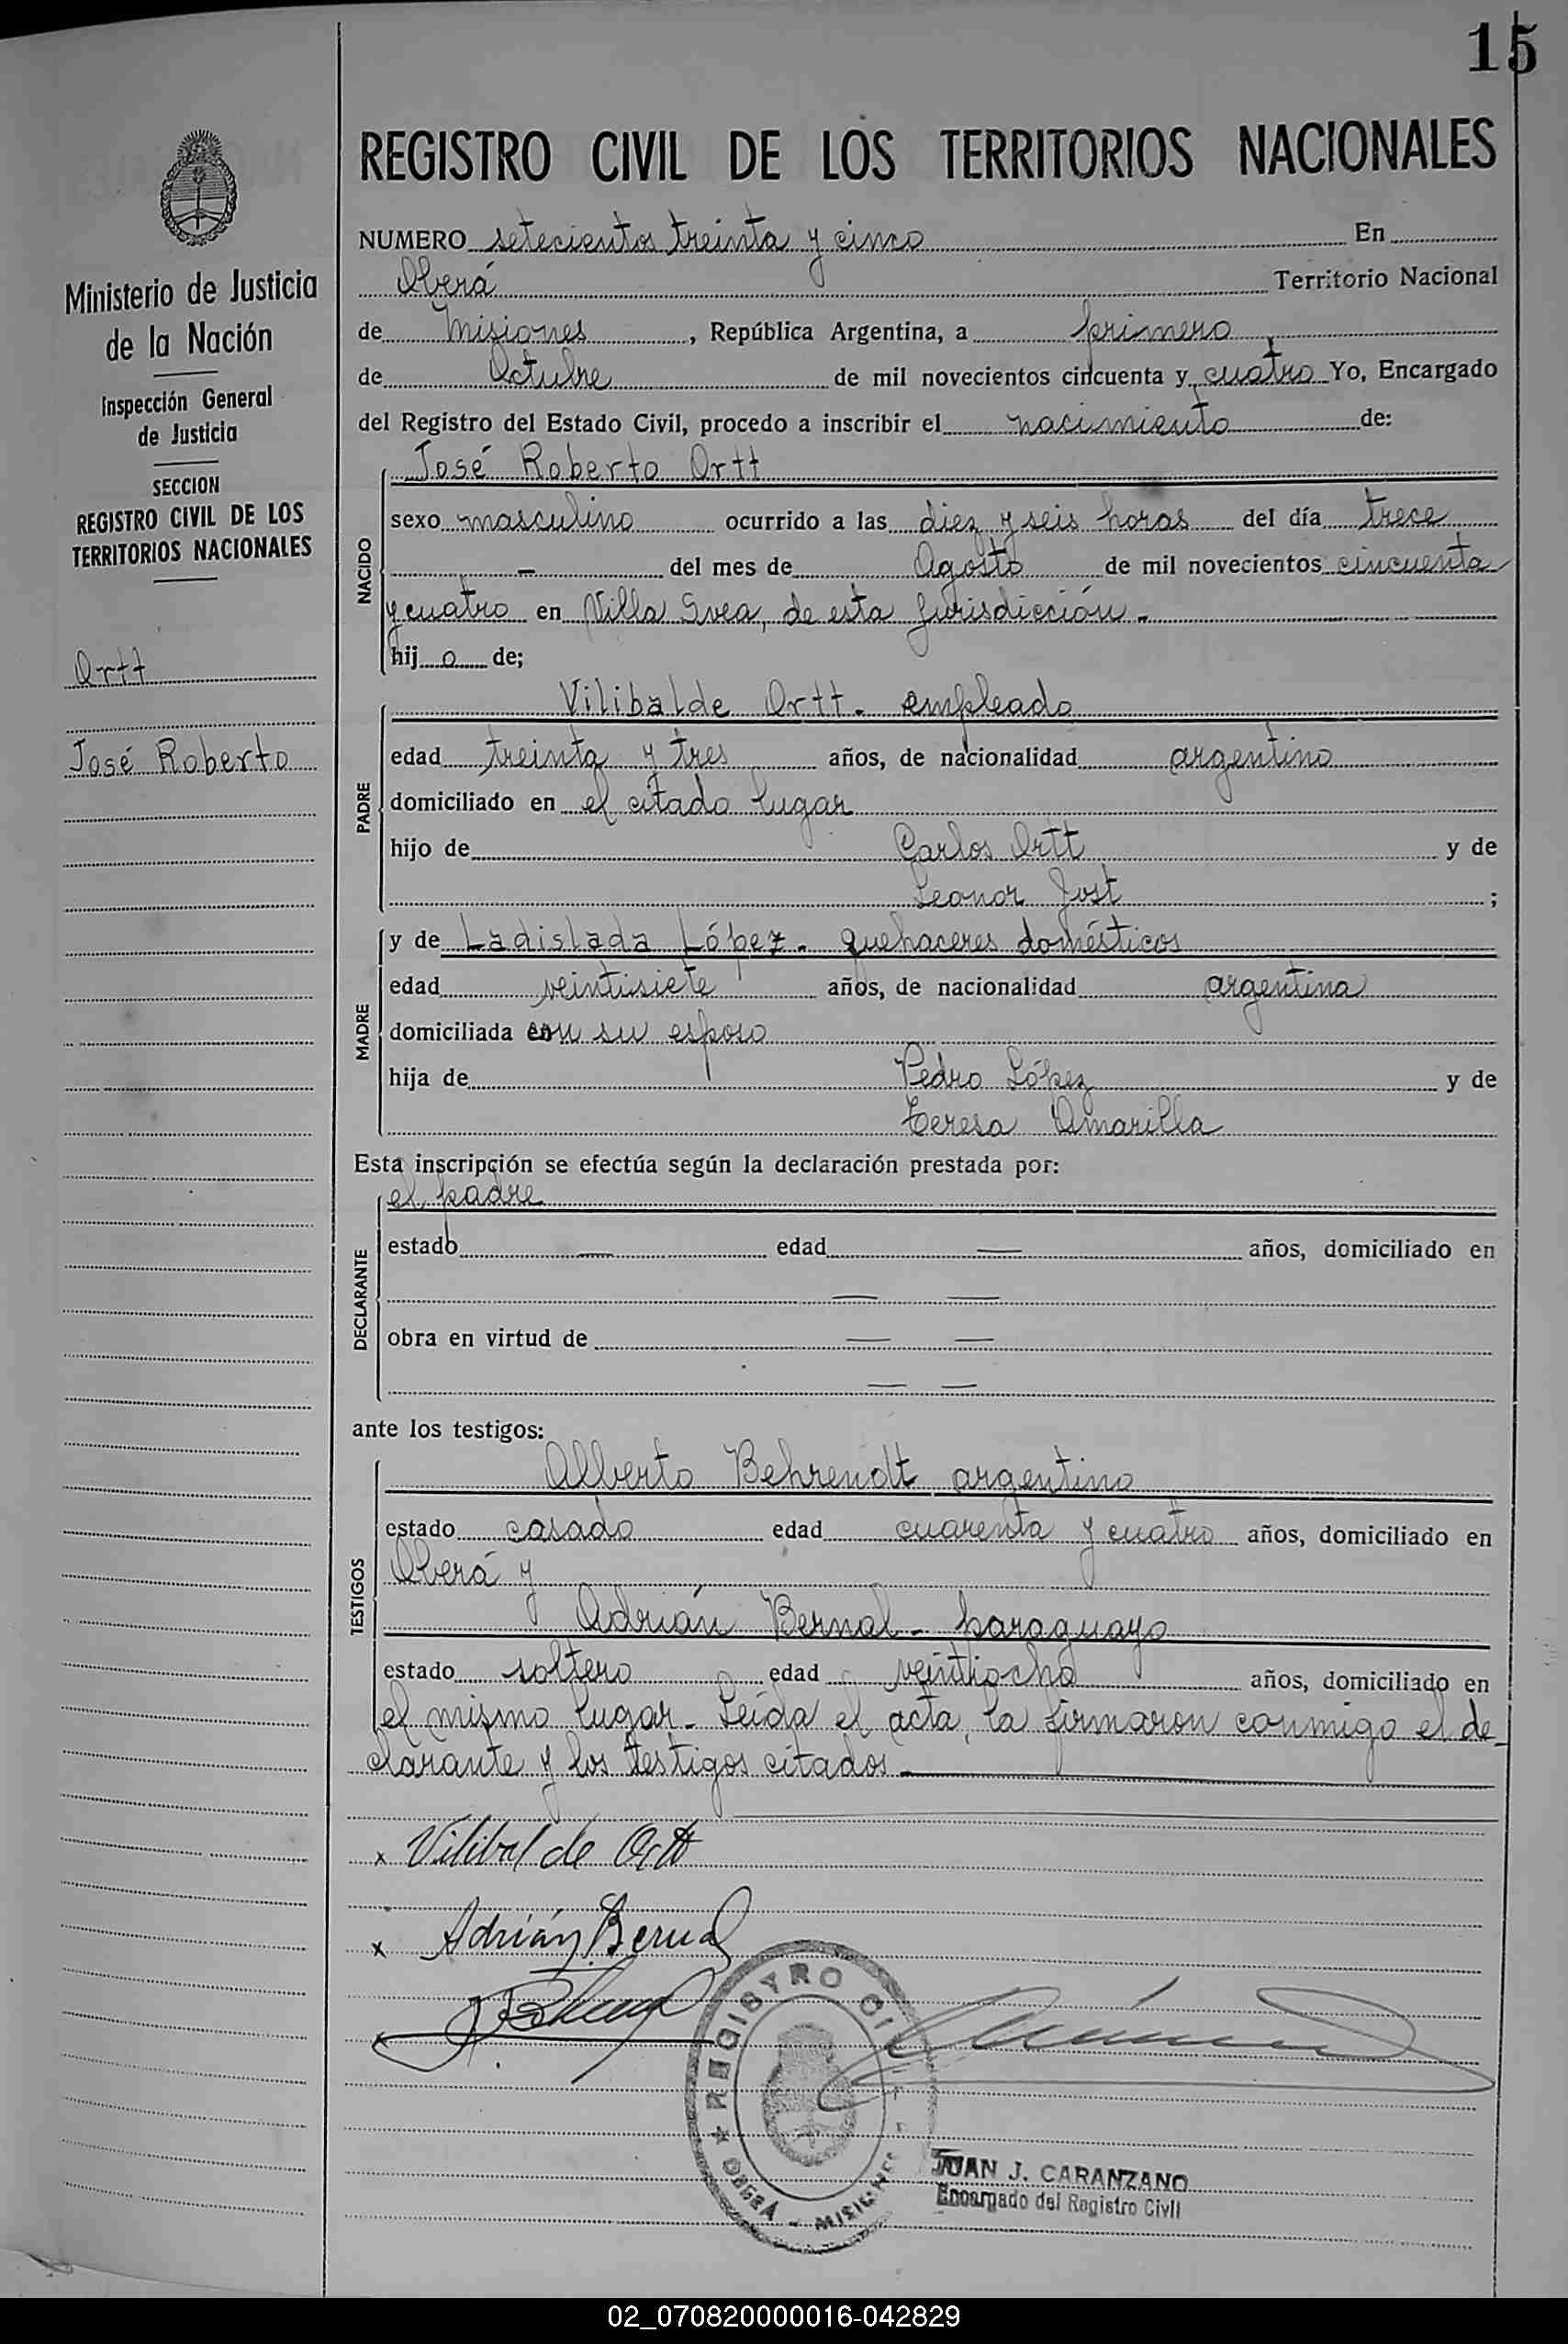 15
REGISTRO CIVIL DE LOS TERRITORIOS NACIONALES
Ministerio de Justicia
de la Nación
Inspección General
de Justicia
SECCION
REGISTRO CIVIL DE LOS
TERRITORIOS NACIONALES
Ortt
José Roberto
NUMERO setecientos treinta y cinco En
Oberá Territorio Nacional
de Misiones, República Argentina, a primero
de Octubre de mil novecientos cincuenta y cuatro Yo, Encargado
del Registro del Estado Civil, procedo a inscribir el nacimiento de:
NACIDO
José Roberto Ortt
sexo masculino ocurrido a las diez y seis horas del día trece
- del mes de Agosto de mil novecientos cincuenta
y cuatro en Villa Svea, de esta Jurisdicción.-
hij o de;
PADRE
Vilibalde Ortt.- empleado
edad treinta y tres años, de nacionalidad argentino
domiciliado en el citado lugar
hijo de Carlos Ortt y de
Leonor Jost ;
MADRE
y de Ladislada López.- quehaceres domésticos
edad veintisiete años, de nacionalidad argentina
domiciliada con su esposo
hija de Pedro López y de
Teresa Amarilla
Esta inscripción se efectúa según la declaración prestada por:
DECLARANTE
el padre
estado — edad — años, domiciliado en
— —
obra en virtud de — —
— —
ante los testigos:
TESTIGOS
Alberto Behrendt argentino
estado casado edad cuarenta y cuatro años, domiciliado en
Oberá y
Adrián Bernal.- paraguayo
estado soltero edad veintiocho años, domiciliado en
el mismo lugar.- Leída el acta, la firmaron conmigo el de-
clarante y los testigos citados.-
x Vilibalde Ortt
x Adrián Bernal
x
REGISTRO CI
OBERÁ - MISIONES
JUAN J. CARANZANO
Encargado del Registro Civil
02_070820000016-042829